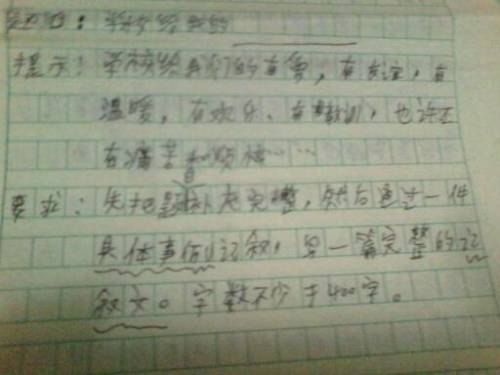 题目：学校给我的
提示：学校给我们的有爱，有友谊，有
温暖，有欢乐、有教训，也许还
有痛苦和烦恼……
要求：先把题目补充完整，然后通过一件
具体事例记叙，写一篇完整的记
叙文。字数不少于400字。